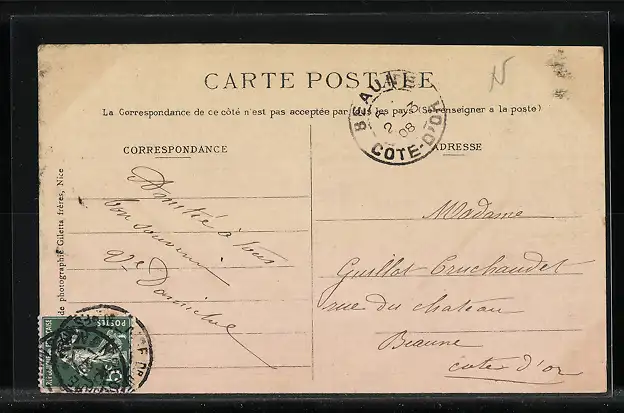 CARTE POSTALE
La Correspondance de ce côté n'est pas acceptée par tous les pays (Se renseigner a la poste)
BEAUNE
2 3
08
CÔTE-D'OR
CORRESPONDANCE
ADRESSE
de photographie Giletta frères, Nice
Amitié à tous
bon souvenir
Madame
Guillot Cruchaudet
rue du chateau
Beaune
cote d'or
POSTES